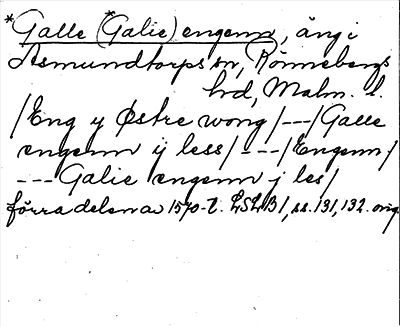 *Galle (*Galie) engenn, äng i
Asmundtorps sn, Rönnebergs
hd, Malm. l.
/Eng y Østre wong/---/Galle
engenn ij less/---/Engenn/
---Galie engenn j les/
förra delen av 1570-t. LSLB1, ss. 131, 132. orig.